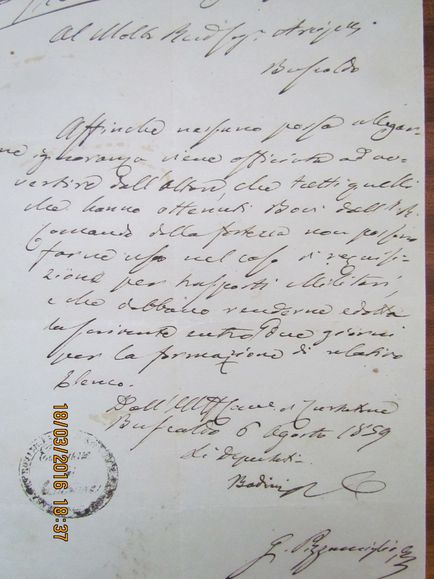 Al Molto Rev.do Sig.r
Buscoldo
Affinche nessuno possa allegar
ne ignoranza viene officiata ad av-
vertire dall'altare, che tutti quelli
che hanno ottenuti Bovi dall'
Comando della fortezza non possino
farne uso nel caso di requisi-
zione per trasporti Militari,
e che debbano renderne edotta
la scrivente entro due giorni
per la formazione di relativo
Elenco.
Dall'Uff. Com. di Curtatone
Buscoldo 6 Agosto 1859
Li Deputati
Bodini
18/03/2016 18:37